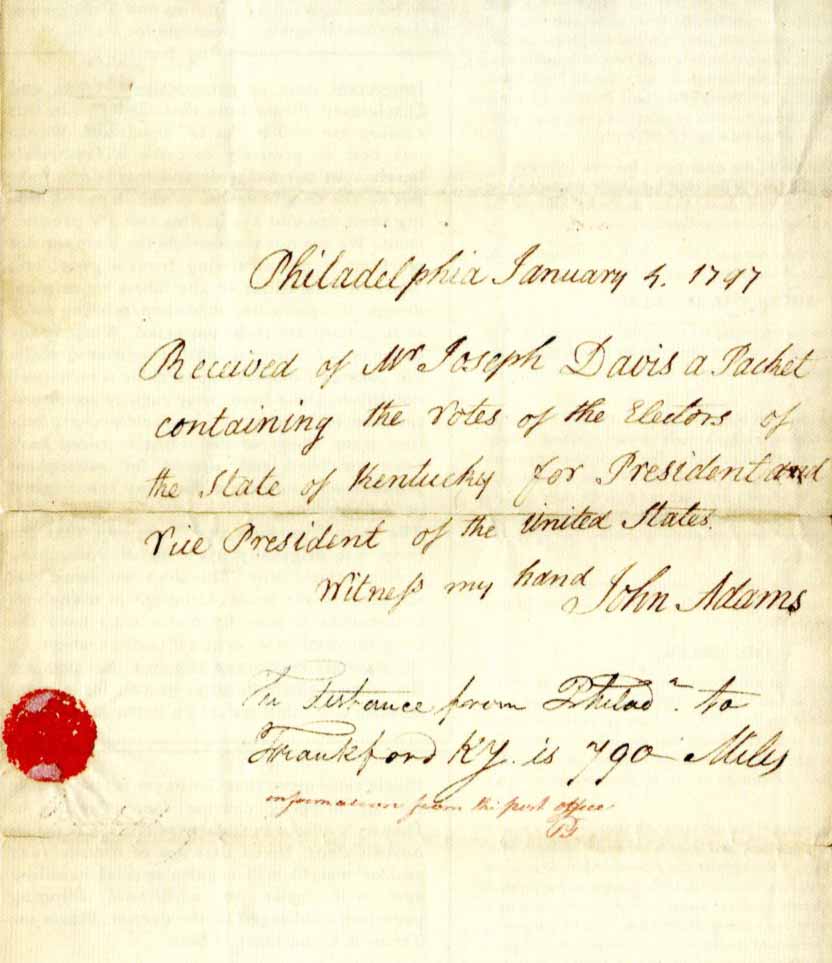 Philadelphia January 5. 1797
Received of Mr Joseph Davis a Packet
containing the Votes of the Electors of
the State of Kentucky for President and
Vice President of the United States.
Witneſs my hand John Adams
The Distance from Philada. to
Frankford KY. is 790 Miles
information from the post office